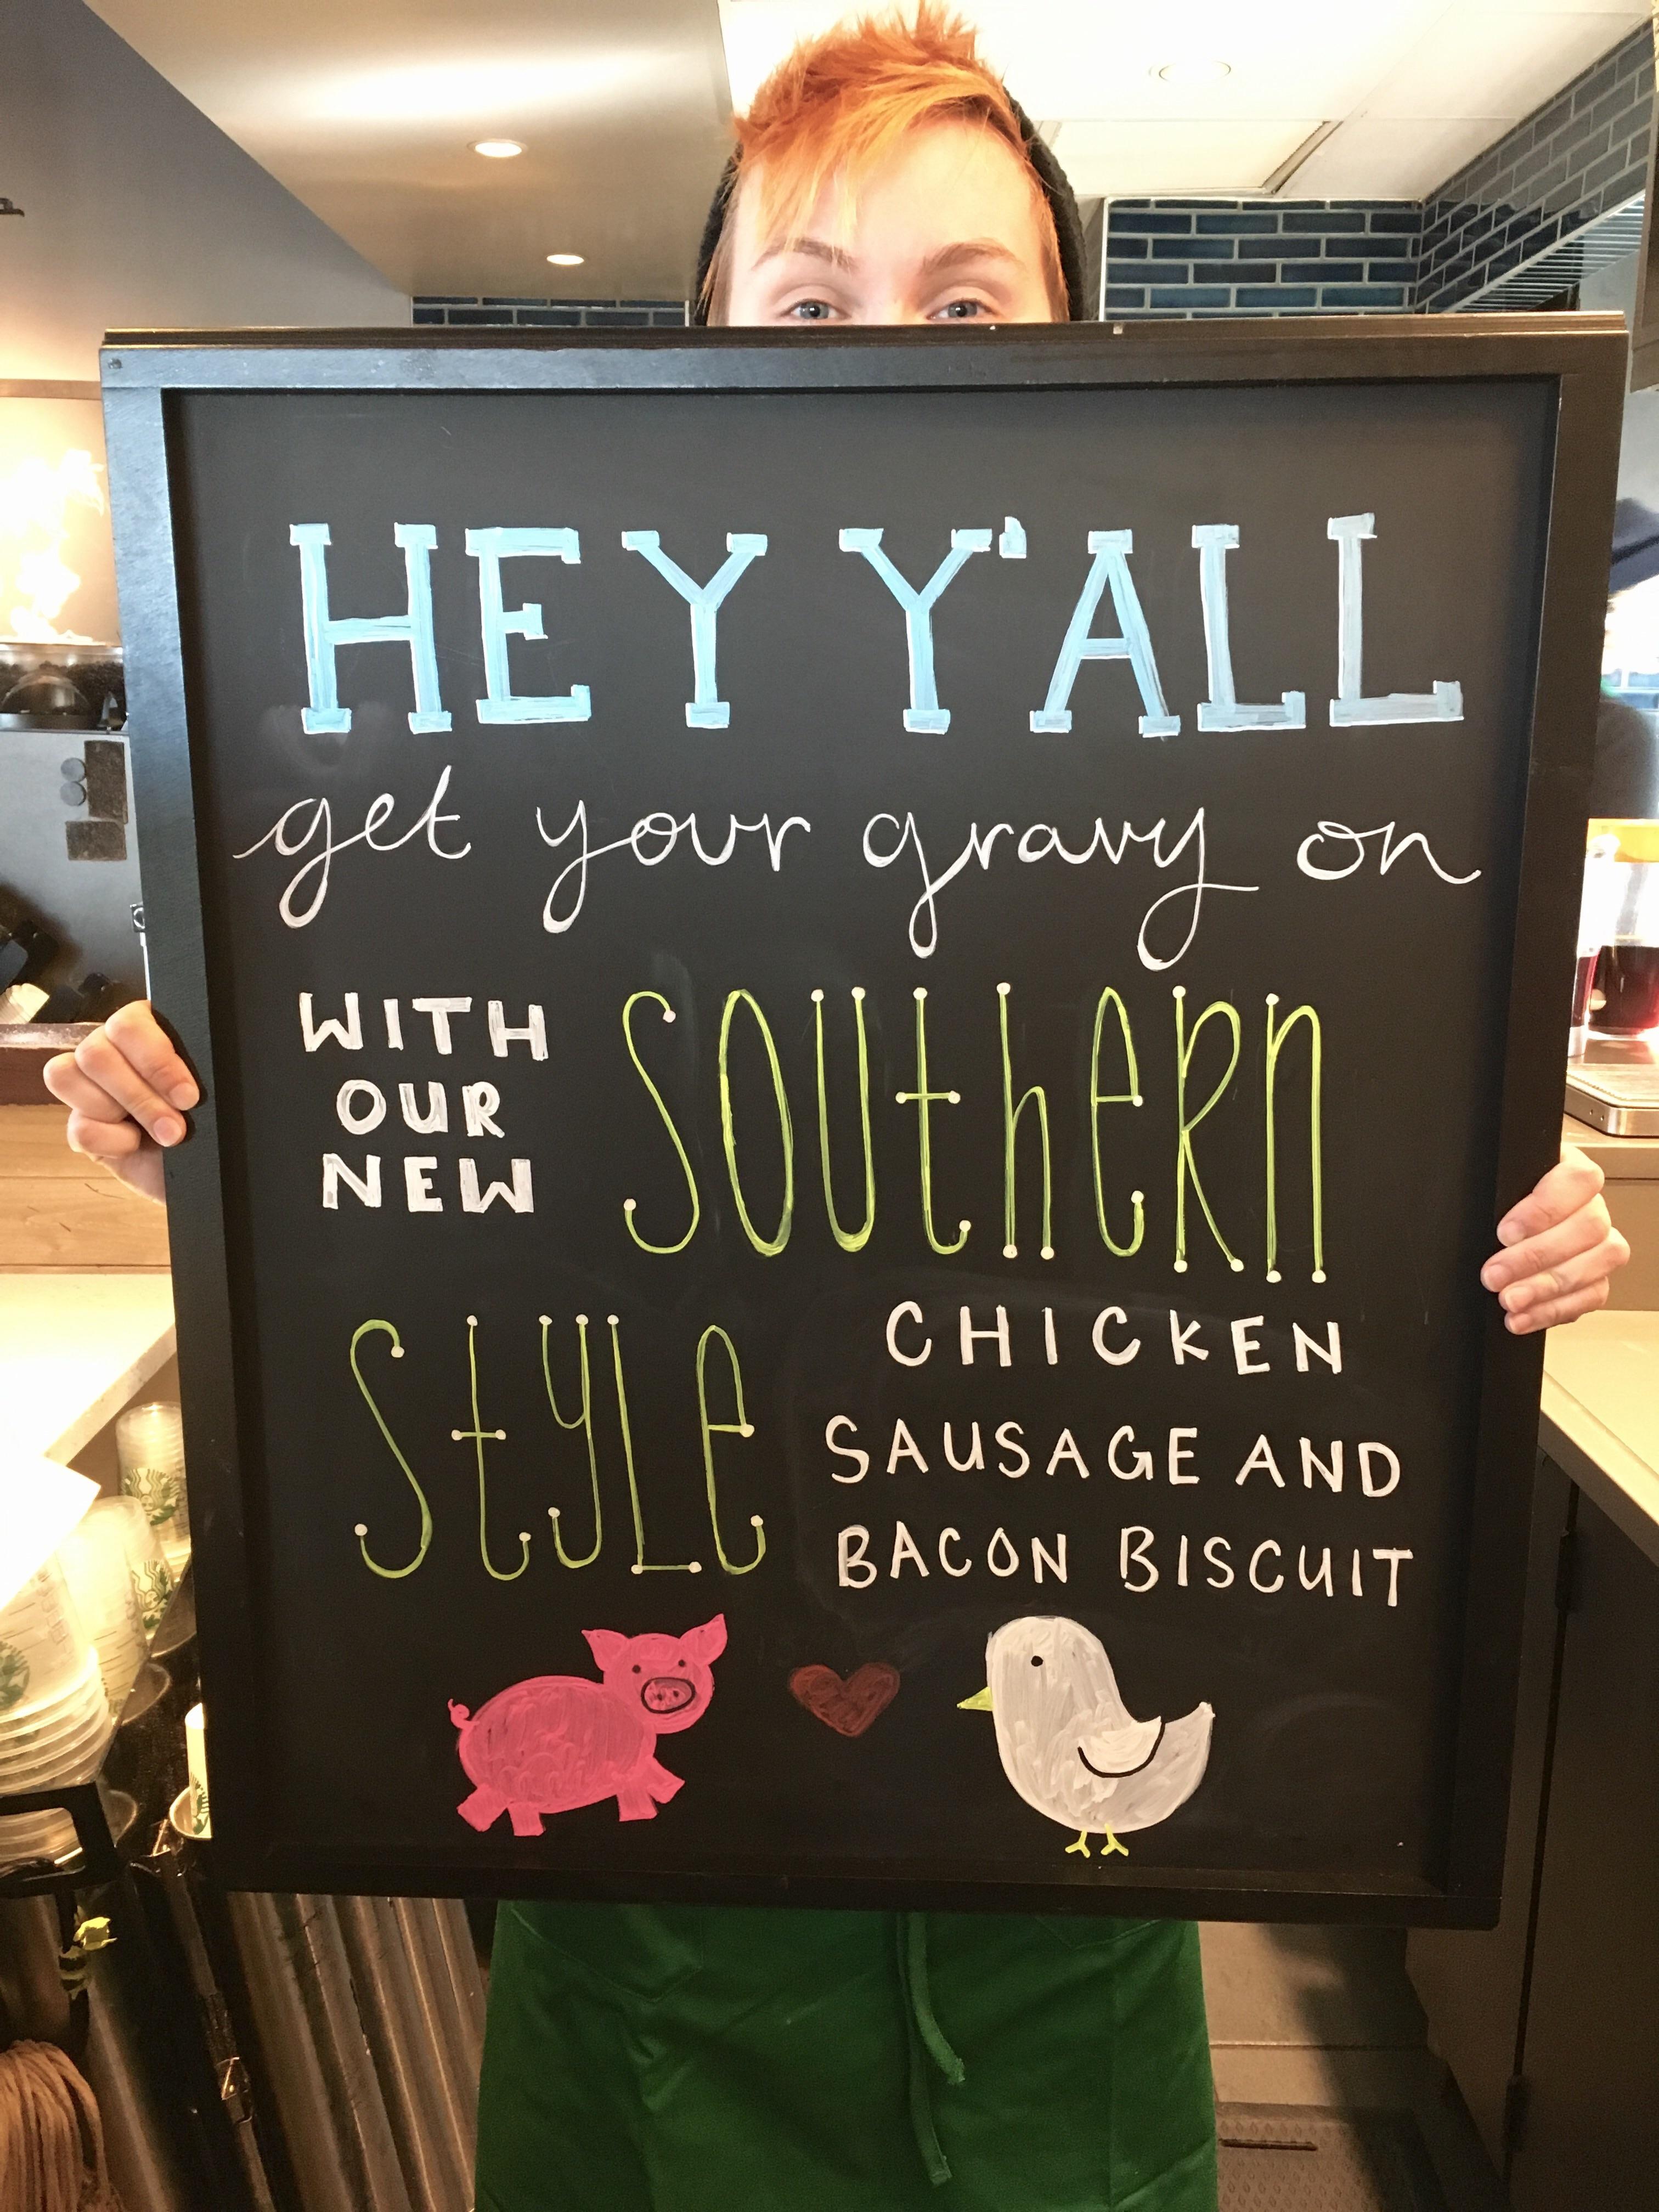 HEY Y'ALL
get your gravy on
WITH
OUR
NEW
SOUthERn
StyLe
CHICKEN
SAUSAGE AND
BACON BISCUIT